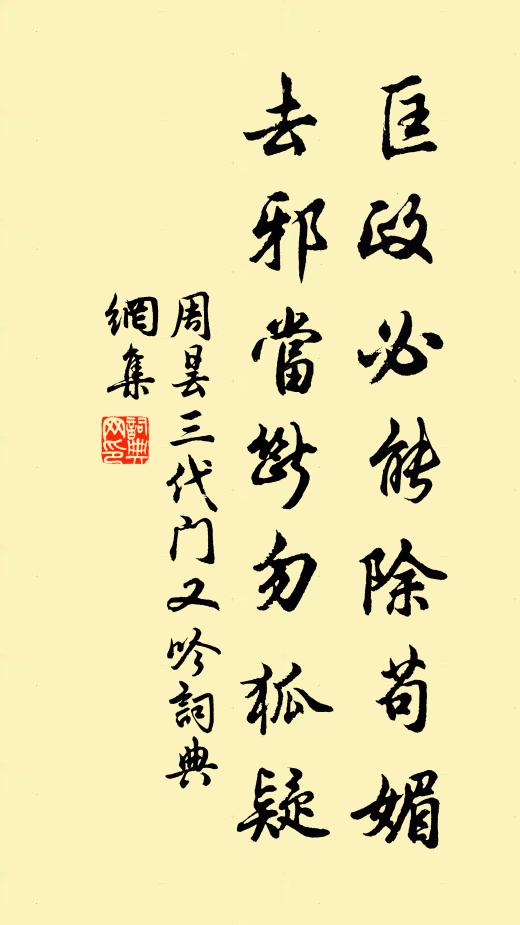 匡政必能除苟媚
去邪當斷勿狐疑
周昙三代门又吟詞典
網集
詞典
网印